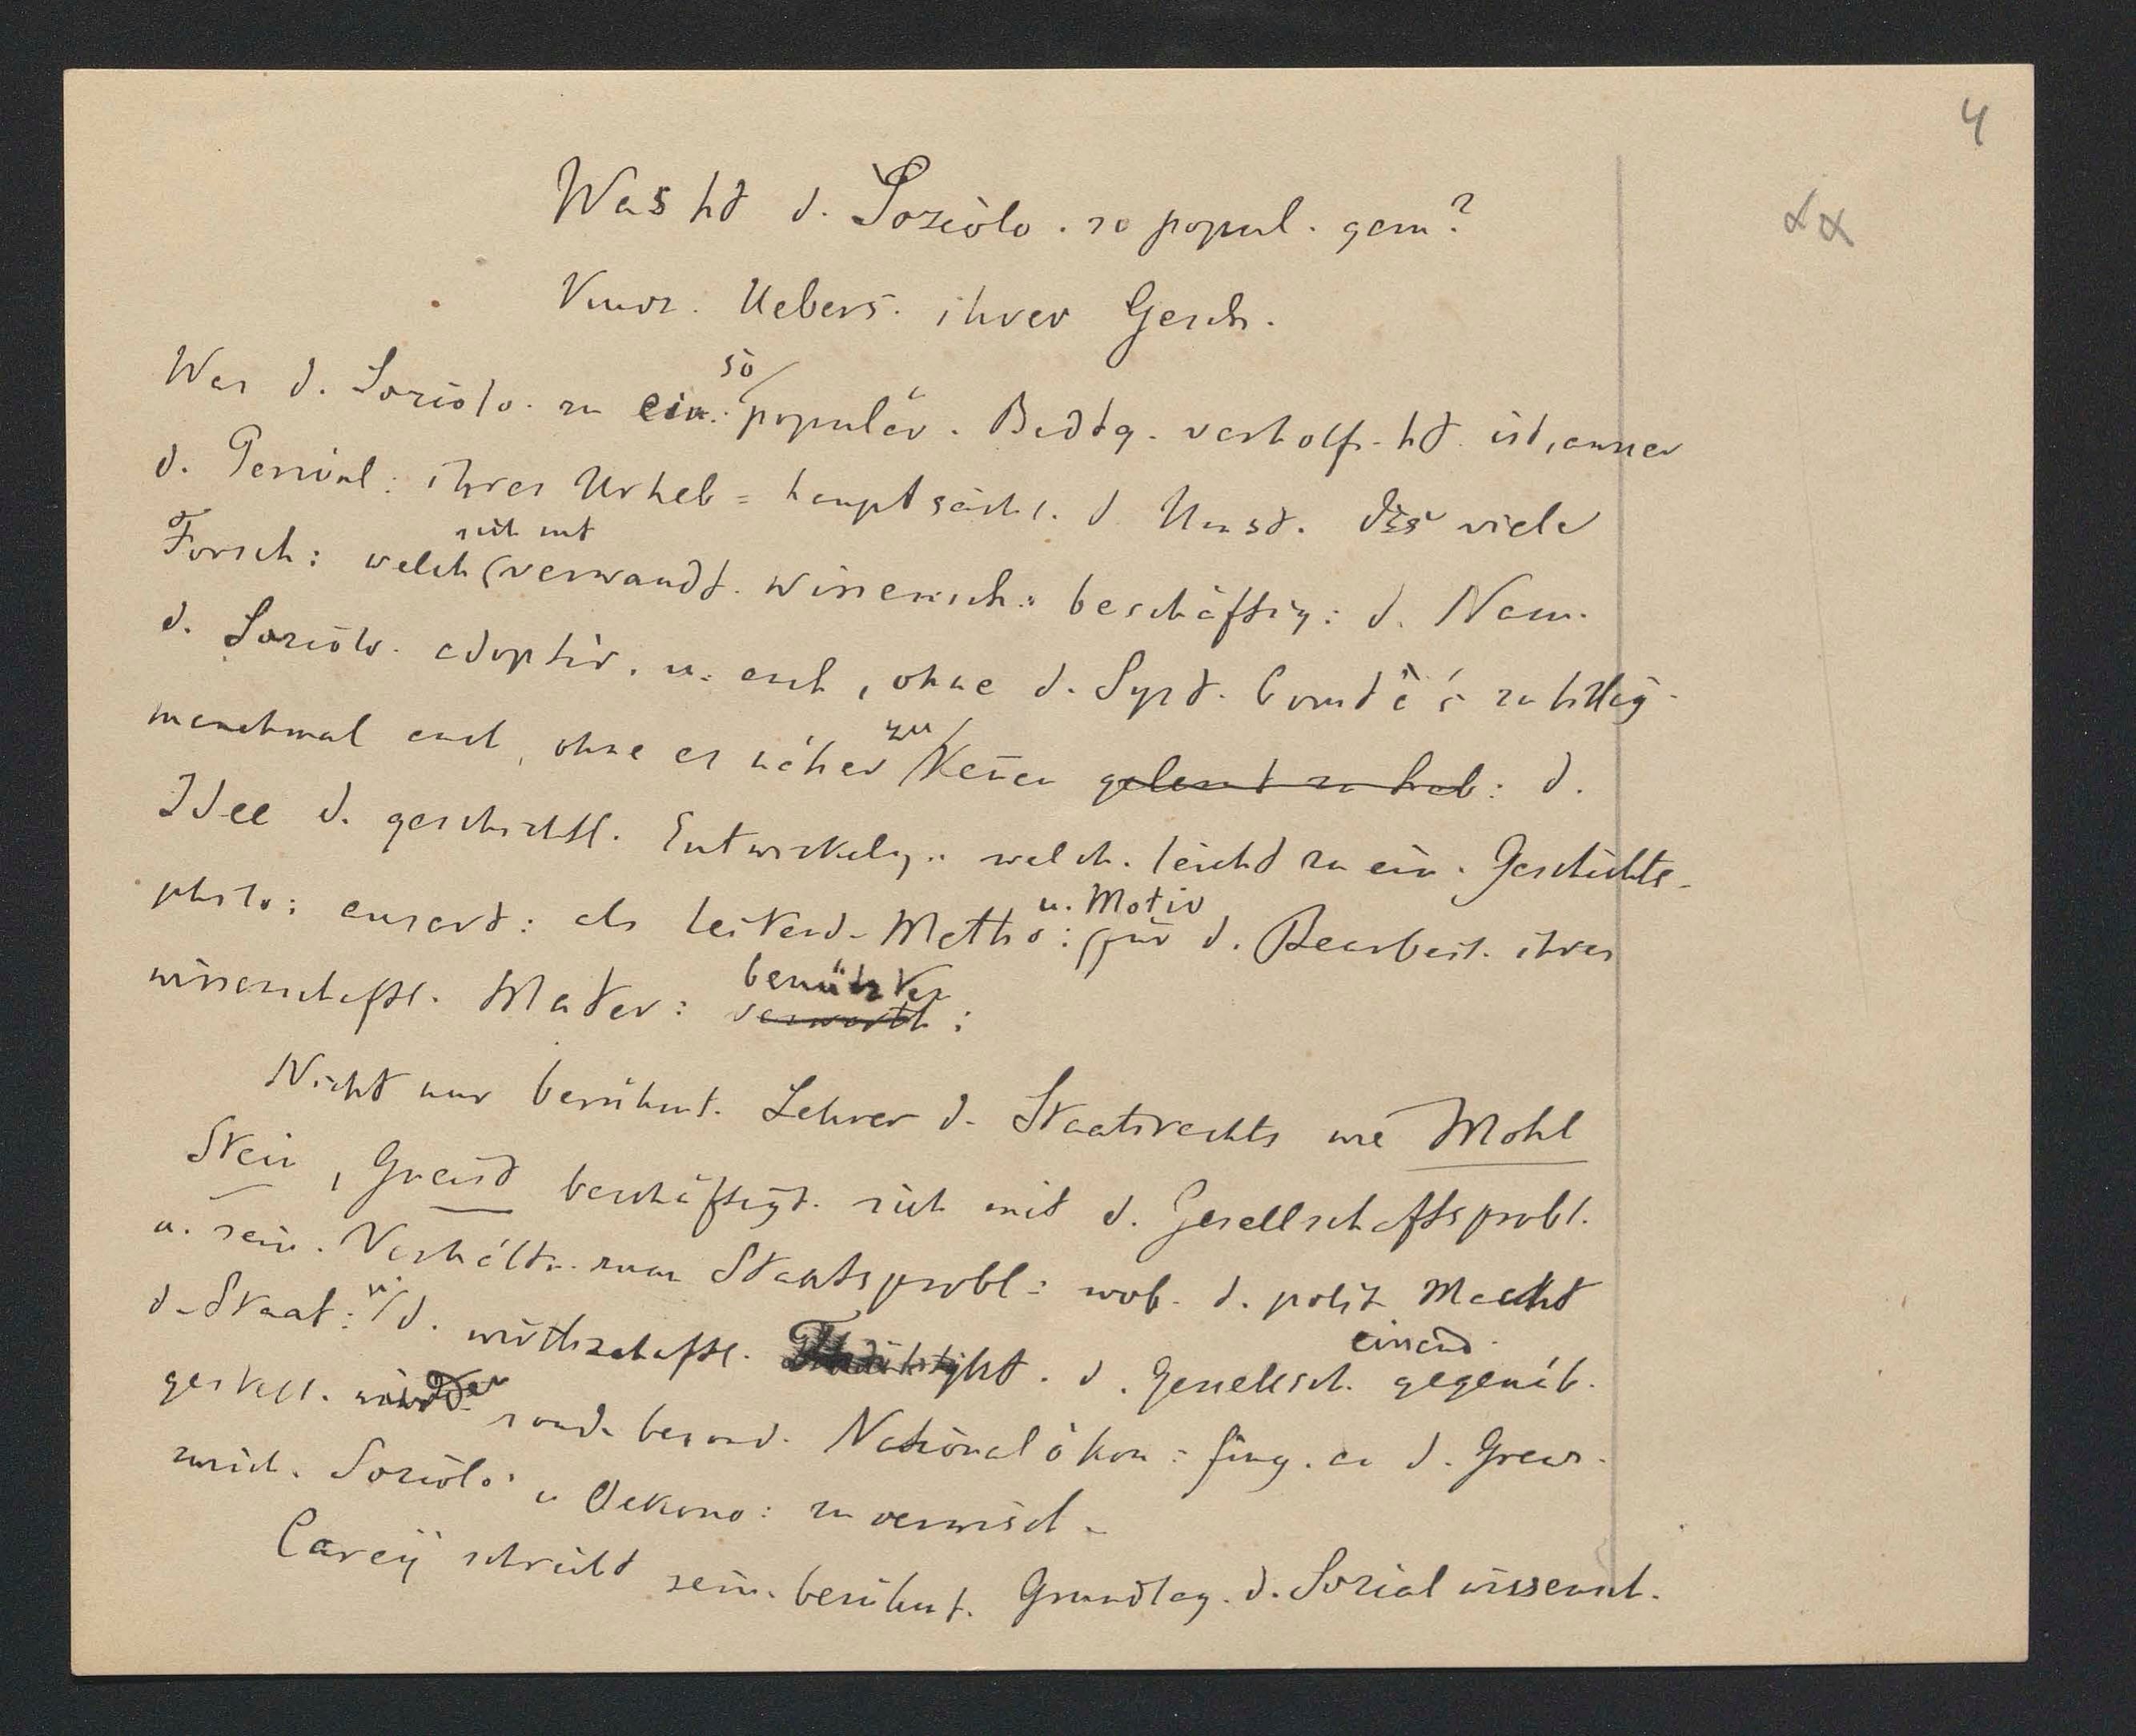 4
Was ht d. Soziolo. so popul. gem?
Uebers. ihrer Gesch.
Was d. Soziolo. zu ein. so populär. Bedtg. verholf. ht. ist, ausser
d. Genial: ihres Urheb = hauptsächl. d. Umst. dss viele
Forsch: welch sich mit verwandt. Wissensch: beschäftig: d. Nam.
d. Soziolo. adoptir. u. auch, ohne d. Syst. Comte's zu billig.
manchmal auch, ohne es näher zu kenen gelernt zu hab: d.
Idee d. geschichtl. Entwickelg.. welch. leicht zu ein. Geschichts-
philo: ausart: als leitend. Metho: u. Motiv für d. Bearbeit. ihres
wissenschaftl. Mater: verwerth: benützten
Nicht nur berühmt. Lehrer d. Staatsrechts wie Mohl
Stein, Gneist beschäftigt. sich mit d. Gesellschaftsprobl.
u. sein. Verhältn. zum Staatsprobl: wob. d. polit. Macht
d. Staat: u. d. wirthschaftl. d. Gesellsch. einand. gegenüb.
gestell. wurden sond. besond. Nationalökon: fing. an d. Grenz.
zwisch. Soziolo: u Oekono: zu verwisch.
Carey schreibt sein. berühmt. Grundlag. d. Sozialwissensch.